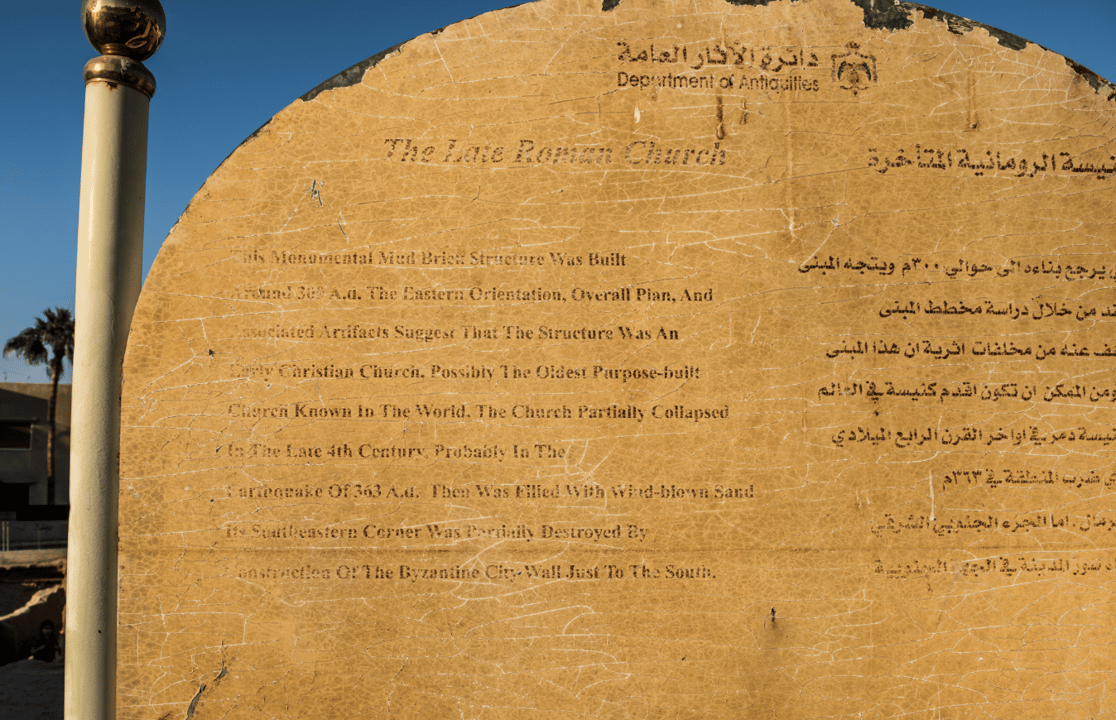 دائرة الآثار العامة
Department of Antiquities
The Late Roman Church
This Monumental Mud Brick Structure Was Built
Around A.d. The Eastern Orientation, Overall Plan, And
Associated Artifacts Suggest That The Structure Was An
Early Christian Church. Possibly The Oldest Purpose-built
Church Known In The World. The Church Partially Collapsed
In The Late 4th Century, Probably In The
Earthquake Of 363 A.d. Then Was Filled With Wind-blown Sand
Its Southeastern Corner Was Partially Destroyed By
Construction Of The Byzantine City-Wall Just To The South.
الرومانية المتأخرة
يرجع بناءه الى حوالي ٣٠٠م ويتجه المبنى
من خلال دراسة مخطط المبنى
عنه من مخلفات اثرية ان هذا المبنى
ومن الممكن ان تكون اقدم كنيسة في العالم
دمر في اواخر القرن الرابع الميلادي
المنطقة في ٣٦٣م
اما الجزء الجنوبي الشرقي
سور المدينة في الجهة الجنوبية